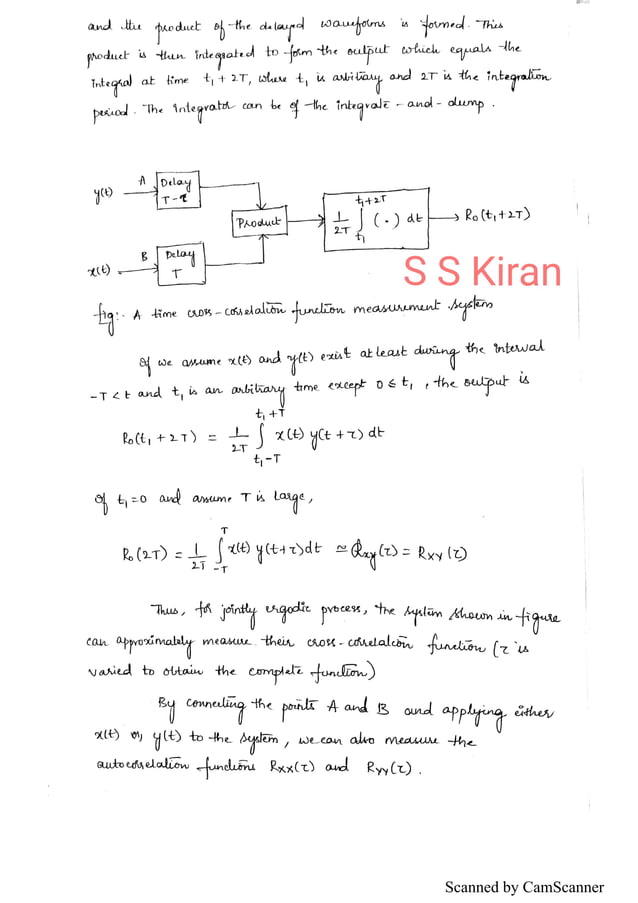 and the product of the delayed waveforms is formed. This
product is then integrated to form the output which equals the
integral at time t₁ + 2T, where t₁ is arbitrary and 2T is the integration
period. The integrator can be of the integrate-and-dump.
y(t) A Delay T-τ
Product
1/2T ∫_{t₁}^{t₁+2T} (·) dt → R₀(t₁+2T)
x(t) B Delay T
S S Kiran
fig:- A time cross-correlation function measurement system
If we assume x(t) and y(t) exist at least during the interval
-T < t and t₁ is an arbitrary time except 0 ≤ t₁, the output is
R₀(t₁ + 2T) = 1/2T ∫_{t₁-T}^{t₁+T} x(t) y(t+τ) dt
If t₁=0 and assume T is large,
R₀(2T) = 1/2T ∫_{-T}^{T} x(t) y(t+τ)dt ≃ ℛxy(τ) = RXY(τ)
Thus, for jointly ergodic process, the system shown in figure
can approximately measure their cross-correlation function (τ is
varied to obtain the complete function)
By connecting the points A and B and applying either
x(t) or y(t) to the system, we can also measure the
autocorrelation functions RXX(τ) and RYY(τ).
Scanned by CamScanner